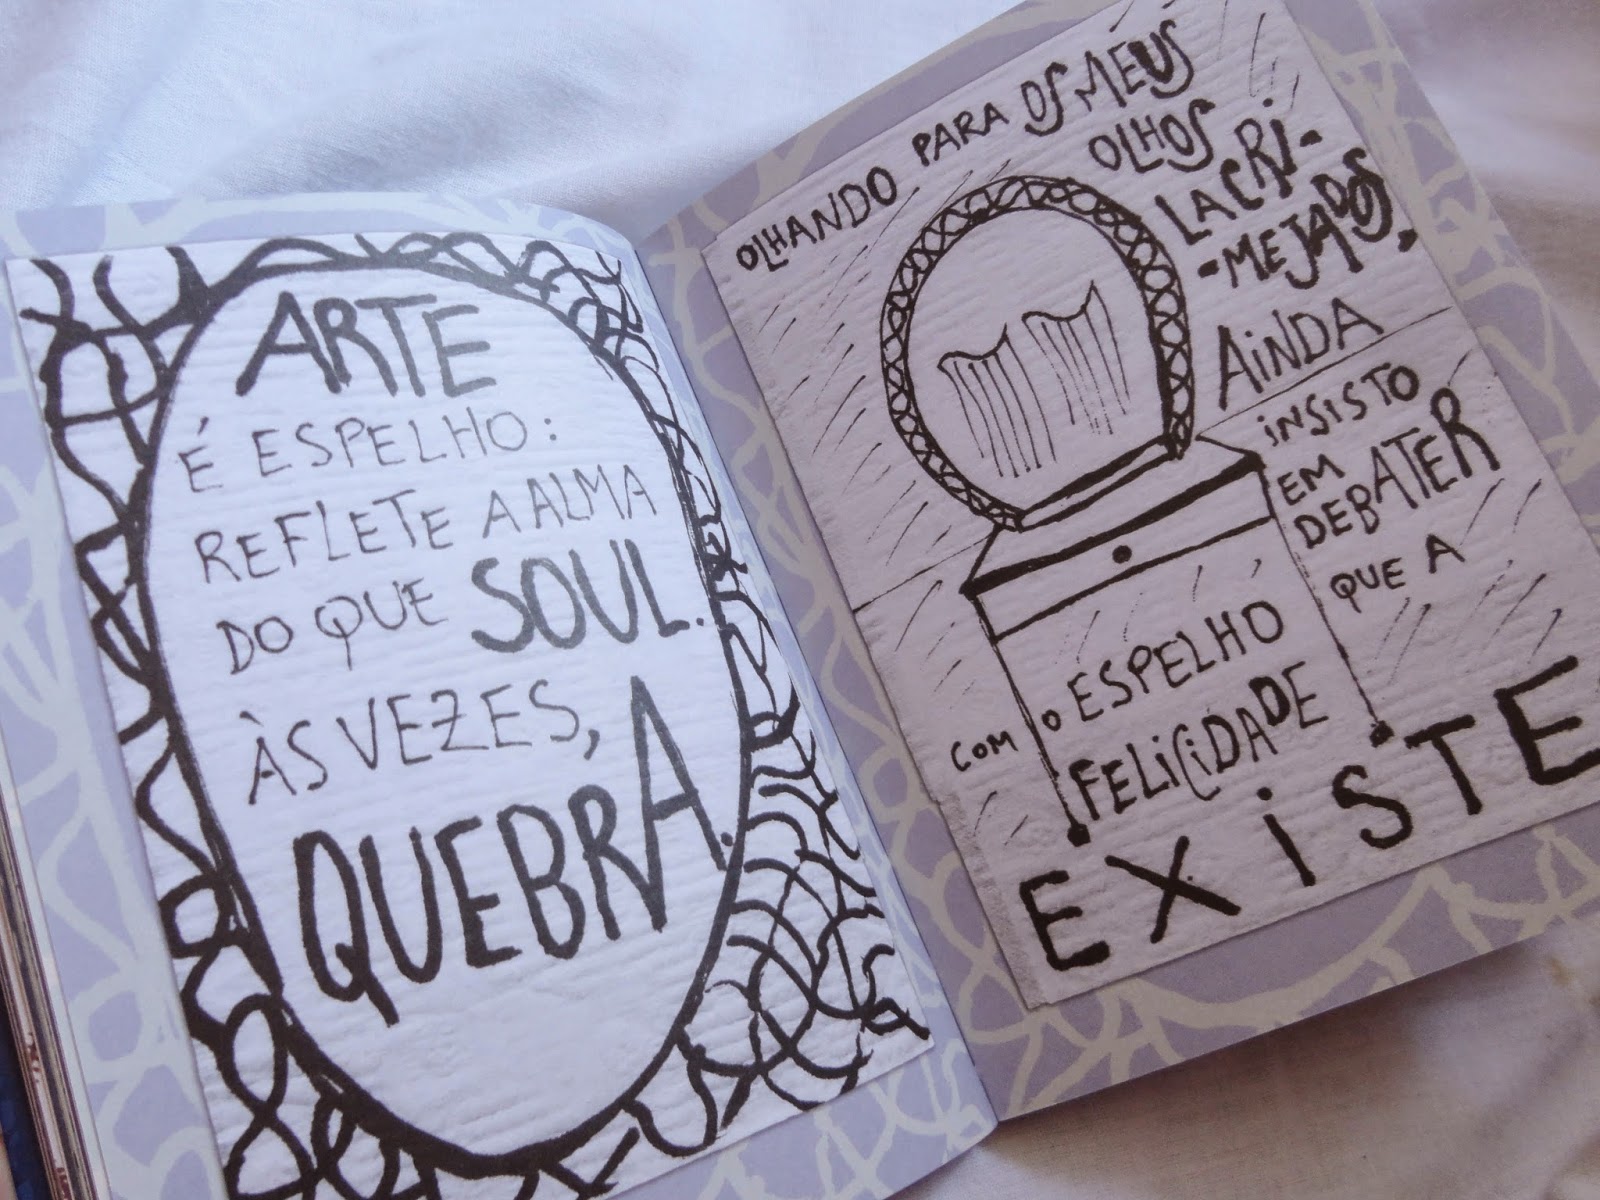 ARTE
É ESPELHO:
REFLETE A ALMA
DO QUE SOUL.
ÀS VEZES,
QUEBRA.
OLHANDO PARA OS MEUS
OLHOS
LACRI-
-MEJADOS,
AINDA
INSISTO
EM
DEBATER
COM O ESPELHO
QUE A
FELICIDADE
EXISTE